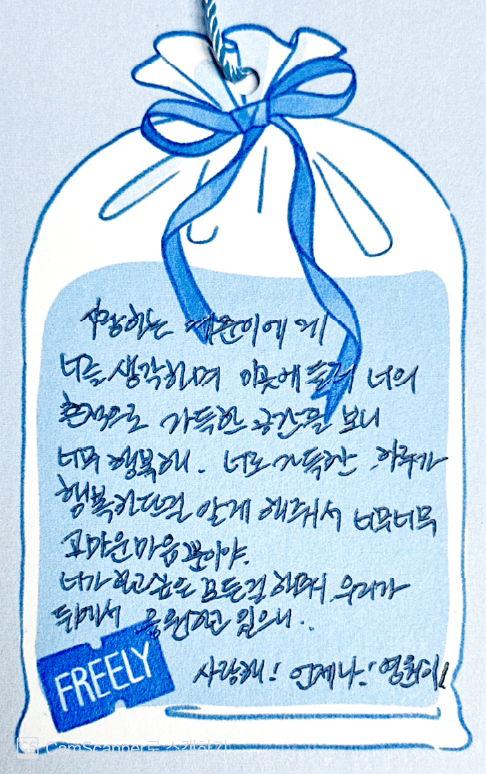 사랑하는 예준이에게
너를 생각하며 이곳에 들러 너의
흔적으로 가득한 공간을 보니
너무 행복해. 너로 가득한 하루가
행복하다는걸 알게 해줘서 너무너무
고마운마음뿐이야.
너가 하고싶은 모든걸 하면서 우리가
뒤에서 응원하고 있으니..
사랑해! 언제나! 영원히!
FREELY
CS CamScanner로 스캔하기